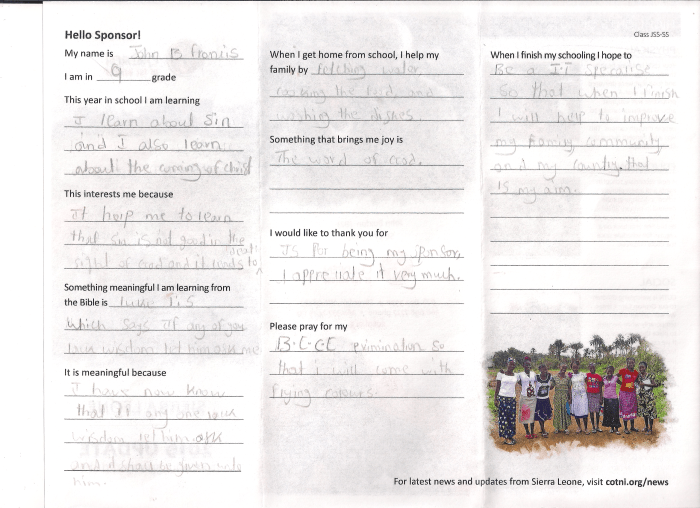 Hello Sponsor!
My name is John B Francis
I am in 9 grade
This year in school I am learning
I learn about Sin
and I also learn
about the coming of christ
This interests me because
It help me to learn
that sin is not good in the
sight of God and it leads to
Something meaningful I am learning from
the Bible is
which says If any of you
wisdom let him ask me
It is meaningful because
I have now know
that If any one
wisdom let him ask
and it shall be given unto
him.
When I get home from school, I help my
family by fetching water
cooking the food, and
washing the dishes.
Something that brings me joy is
The word of God.
I would like to thank you for
for being my sponsor,
I appreciate it very much.
Please pray for my
B.E.C.E so
that I will come with
flying colours.
Class JSS-SS
When I finish my schooling I hope to
Be a I.T
So that when I finish
I will help to improve
my family community
and my country. that
is my aim.
For latest news and updates from Sierra Leone, visit cotni.org/news